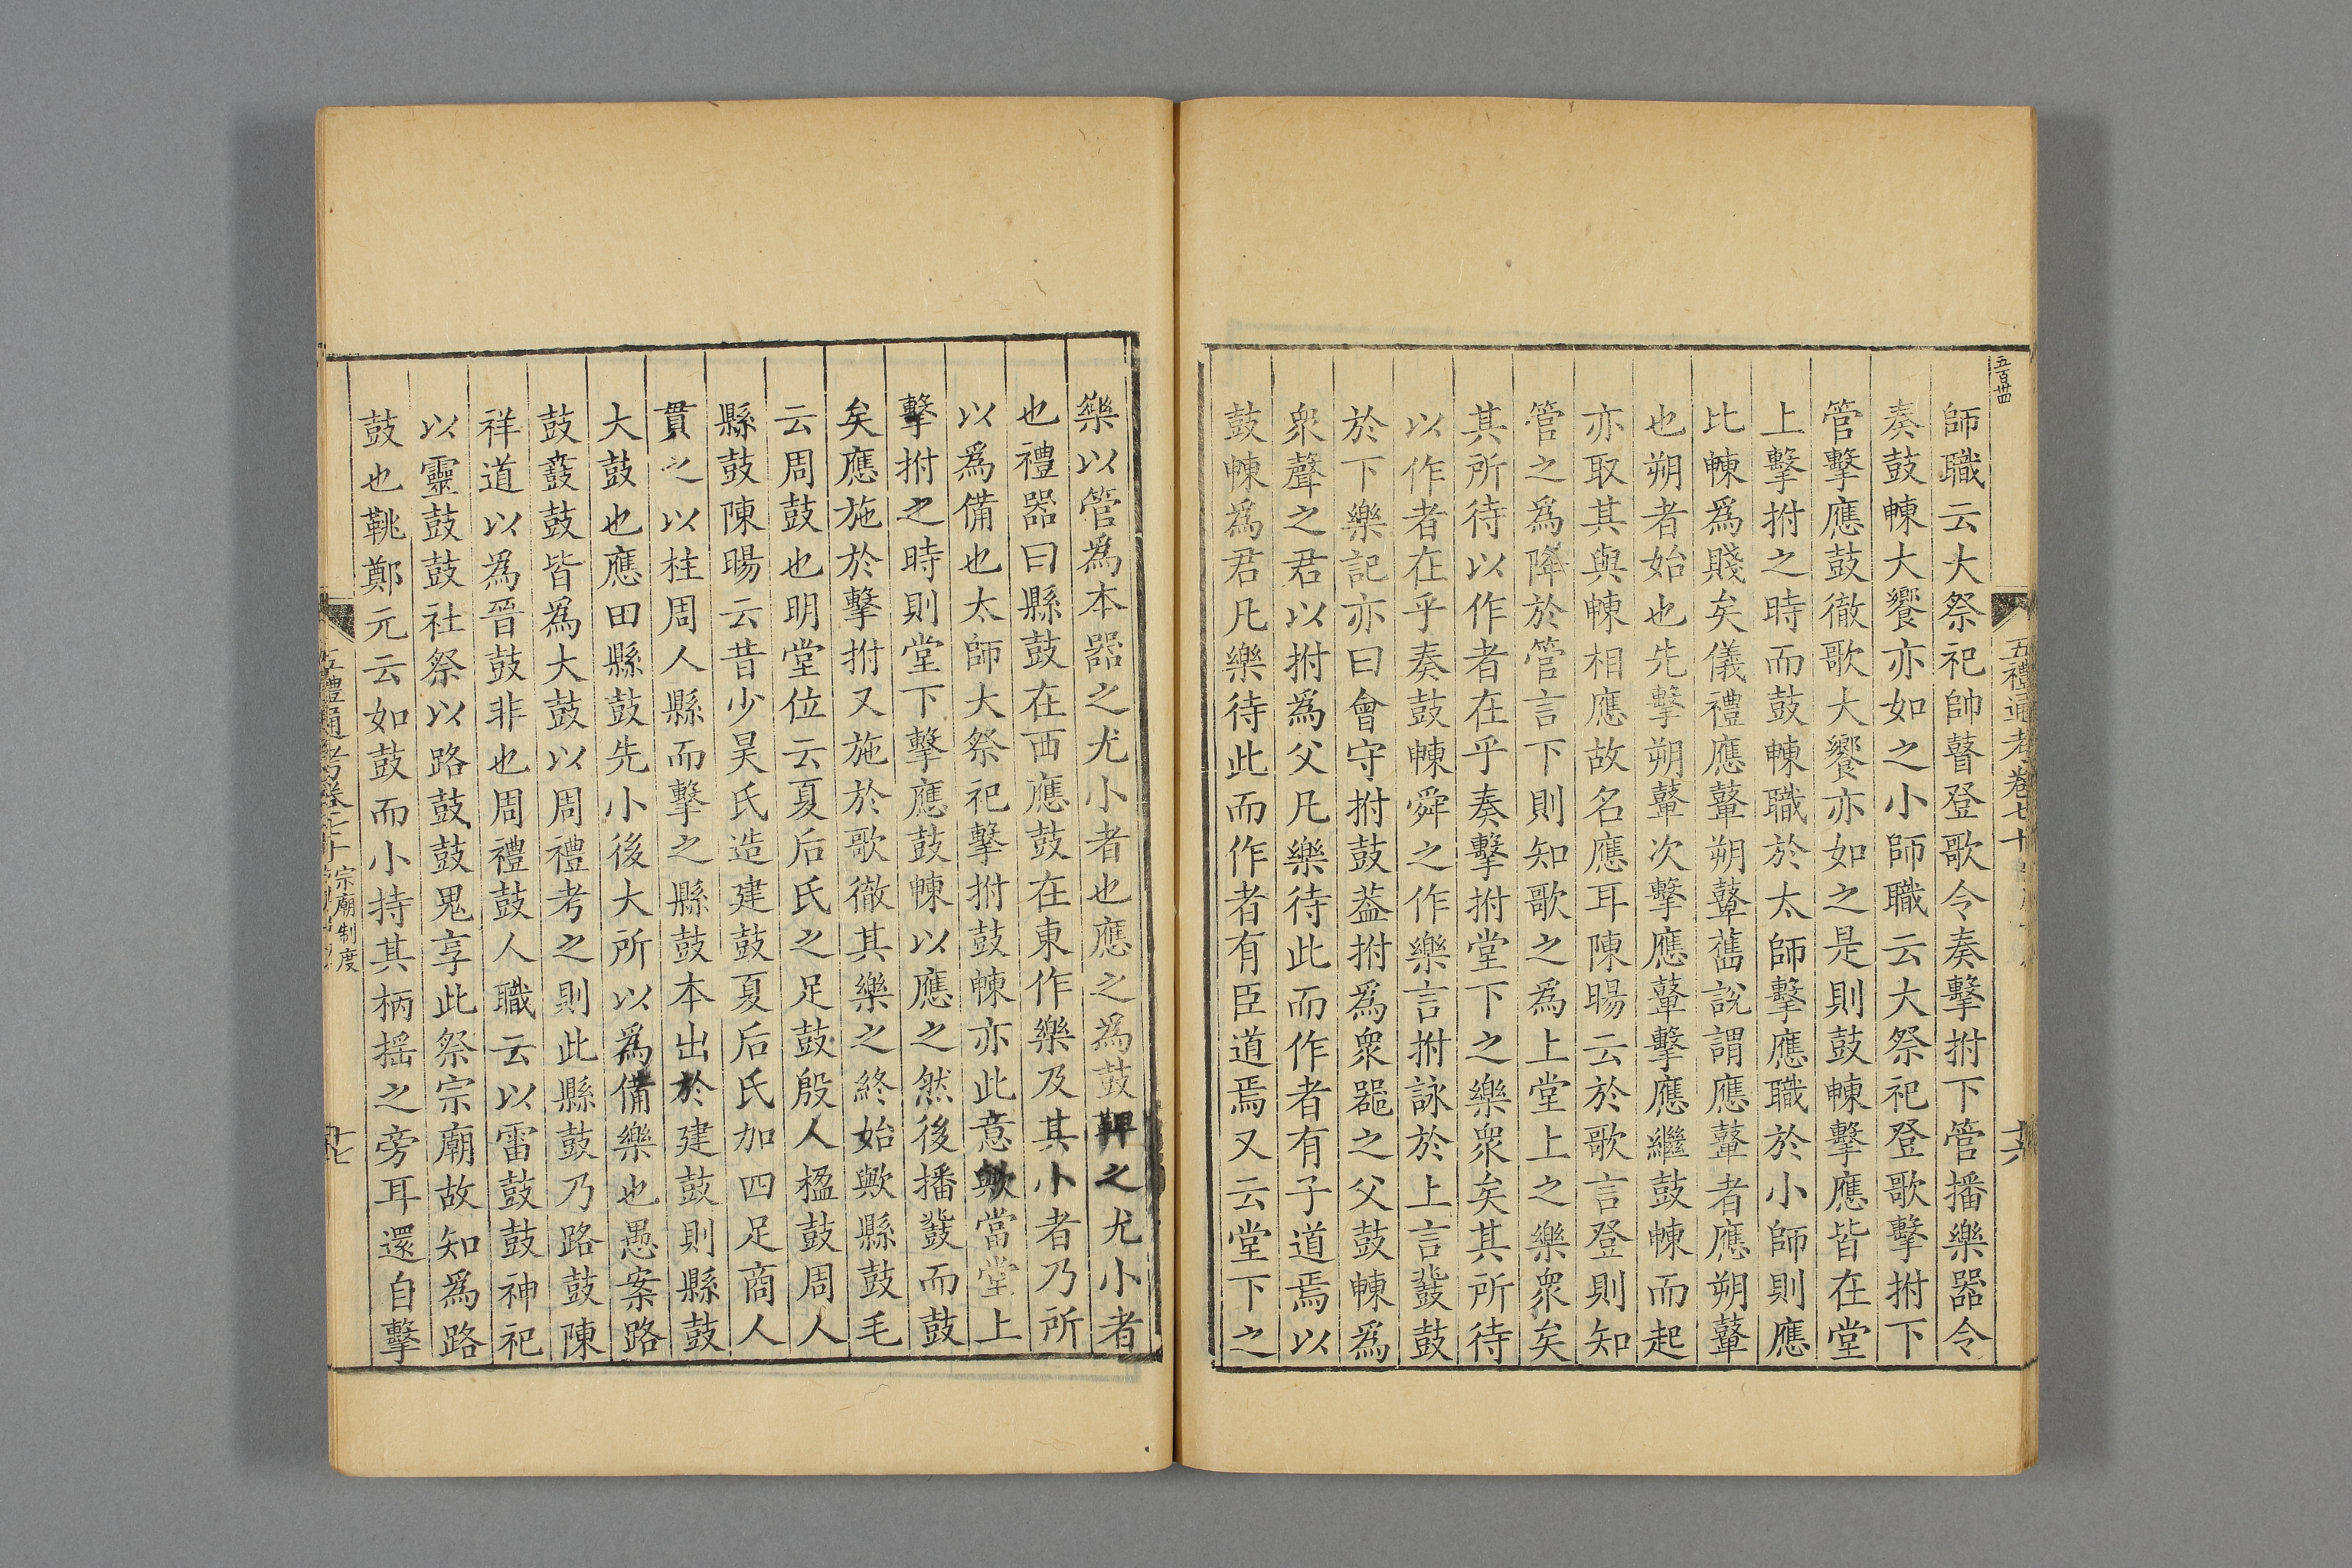 五百卌四
五禮通考卷七十
十六
師職云大祭祀帥瞽登歌令奏擊拊下管播樂器令
奏鼓朄大饗亦如之小師職云大祭祀登歌擊拊下
管擊應鼓徹歌大饗亦如之是則鼓朄擊應皆在堂
上擊拊之時而鼓朄職於太師擊應職於小師則應
比朄爲賤矣儀禮應鼙朔鼙舊說謂應鼙者應朔鼙
也朔者始也先擊朔鼙次擊應鼙擊應繼鼓朄而起
亦取其與朄相應故名應耳陳暘云於歌言登則知
管之爲降於管言下則知歌之爲上堂上之樂衆矣
其所待以作者在乎奏擊拊堂下之樂衆矣其所待
以作者在乎奏鼓朄舜之作樂言拊詠於上言鼗鼓
於下樂記亦曰會守拊鼓葢拊爲衆噐之父鼓朄爲
衆聲之君以拊爲父凡樂待此而作者有子道焉以
鼓朄爲君凡樂待此而作者有臣道焉又云堂下之
樂以管爲本器之尤小者也應之爲鼓鞞之尤小者
也禮器曰縣鼓在西應鼓在東作樂及其小者乃所
以爲備也太師大祭祀擊拊鼓朄亦此意歟當堂上
擊拊之時則堂下擊應鼓朄以應之然後播鼗而鼓
矣應施於擊拊又施於歌徹其樂之終始歟縣鼓毛
云周鼓也明堂位云夏后氏之足鼓殷人楹鼓周人
縣鼓陳暘云昔少昊氏造建鼓夏后氏加四足商人
貫之以柱周人縣而擊之縣鼓本出於建鼓則縣鼓
大鼓也應田縣鼓先小後大所以爲備樂也愚案路
鼓鼖鼓皆爲大鼓以周禮考之則此縣鼓乃路鼓陳
祥道以為晉鼓非也周禮鼓人職云以雷鼓鼓神祀
以靈鼓鼓社祭以路鼓鼓鬼享此祭宗廟故知爲路
鼓也鞉鄭元云如鼓而小持其柄摇之旁耳還自擊
五禮通考卷七十
宗廟制度
十七